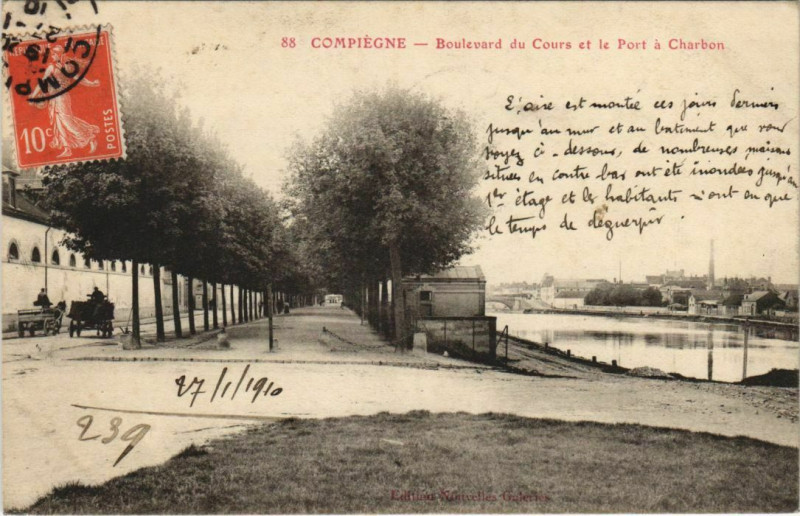 88 COMPIÈGNE — Boulevard du Cours et le Port à Charbon
10c
POSTES
COMPI
L'Oise est montée ces jours derniers
jusqu'au mur et au batiment que vous
voyez ci-dessous, de nombreuses maisons
situées en contre bas ont été inondées jusqu'au
1er étage et les habitants n'ont eu que
le temps de déguerpir.
27/1/1910
239
Edition Nouvelles Galeries